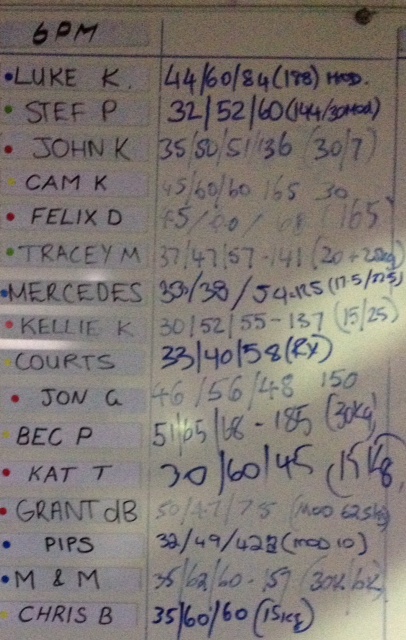 6PM
LUKE K. 44/60/84(188) MOD.
STEF P 32/52/60(144/30MOD)
JOHN K 35/50/51/136 (30/7)
CAM K 45/60/60 165 30
FELIX D (165)
TRACEY M 37/47/57-141 (20
MERCEDES 33/38/54=125(17.5/22.5)
KELLIE K 30/52/55-137 (15/25)
COURTS 33/40/58(RX)
JON G 46/56/48 150
BEC P 51/65/68-185 (30Kg)
KAT T 30/60/45 (15K8
GRANT dB (MOD 62.5kg)
PIPS 32/49/42 (MOD 10)
M & M 35/62/60-157 (30K 6K)
CHRIS B 35/60/60 (15kg)